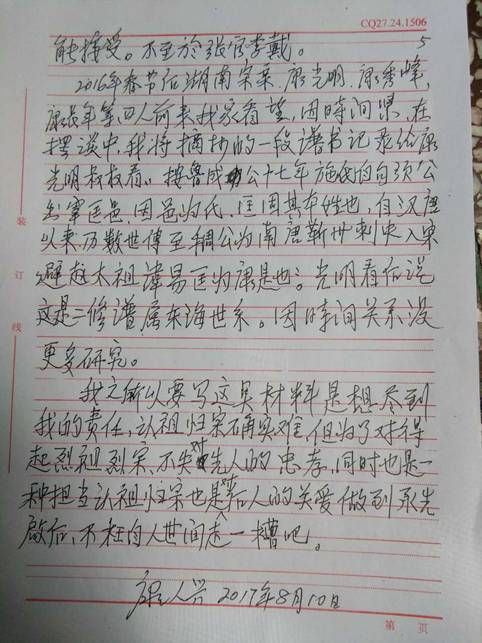 CQ27.24.1506
5
能接受。不至於张冠李戴。
2016年春节后湖南宗亲,康光明,康秀峰,
康长年等四人前来我家看望,因時间紧,在
摆谈中,我将摘抄的一段谱书记录给康
光明叔叔看。按鲁成公十七年施氏自句须公
出宰匡邑,因邑为氏,匡固其本姓也,自汉唐
以来,历数世傳至稠公为南唐靳州刺史入宋
避赵太祖諱易匡为康是也。光明看后说
这是二修谱属东海世系。因時间关系没
更多研究。
我之所以要写这具材料是想尽到
我的责任,认祖归宗确实难,但为了对得
起烈祖烈宗,不失对先人的忠孝,同时也是一
种担当认祖归宗也是对后人的关爱做到承先
啟后,不枉向人世间走一糟吧。
康人兴 2017年8月10日
装
订
线
第 页